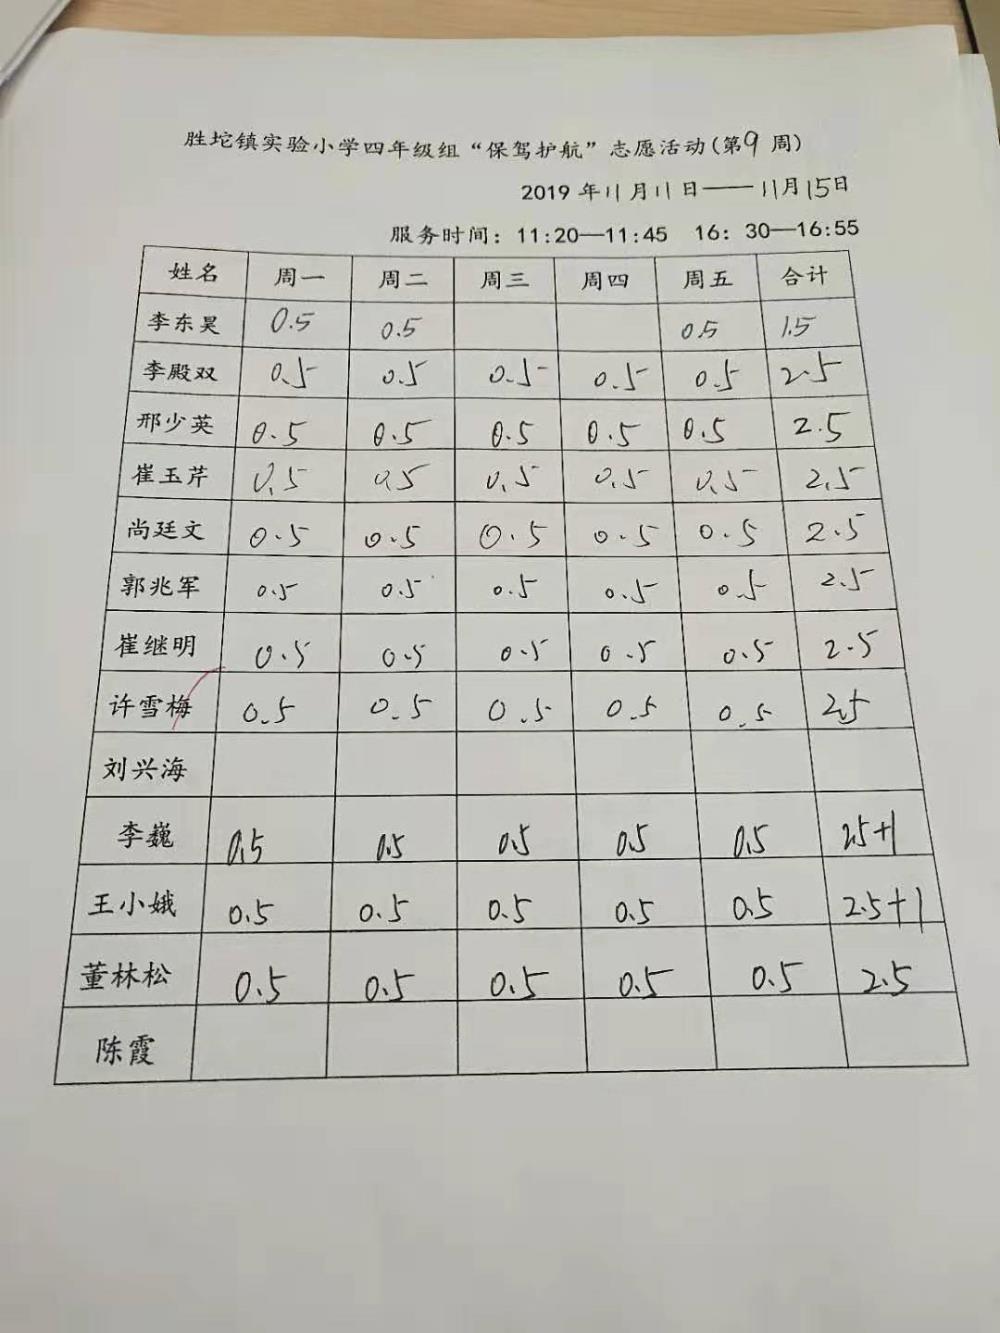 胜坨镇实验小学四年级组“保驾护航”志愿活动(第9周)
2019年11月11日——11月15日
服务时间：11:20—11:45 16：30—16:55
姓名 周一 周二 周三 周四 周五 合计
李东昊 0.5 0.5 0.5 1.5
李殿双 0.5 0.5 0.5 0.5 0.5 2.5
邢少英 0.5 0.5 0.5 0.5 0.5 2.5
崔玉芹 0.5 0.5 0.5 0.5 0.5 2.5
尚廷文 0.5 0.5 0.5 0.5 0.5 2.5
郭兆军 0.5 0.5 0.5 0.5 0.5 2.5
崔继明 0.5 0.5 0.5 0.5 0.5 2.5
许雪梅 0.5 0.5 0.5 0.5 0.5 2.5
刘兴海
李巍 0.5 0.5 0.5 0.5 0.5 2.5+1
王小娥 0.5 0.5 0.5 0.5 0.5 2.5+1
董林松 0.5 0.5 0.5 0.5 0.5 2.5
陈霞